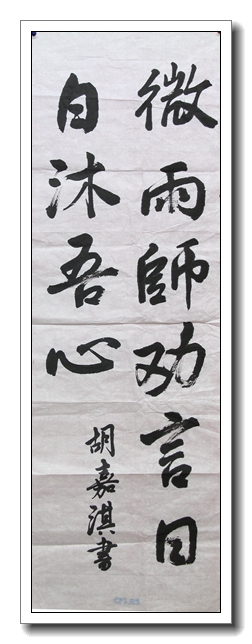 微雨師劝言日
自沐吾心
胡嘉淇書